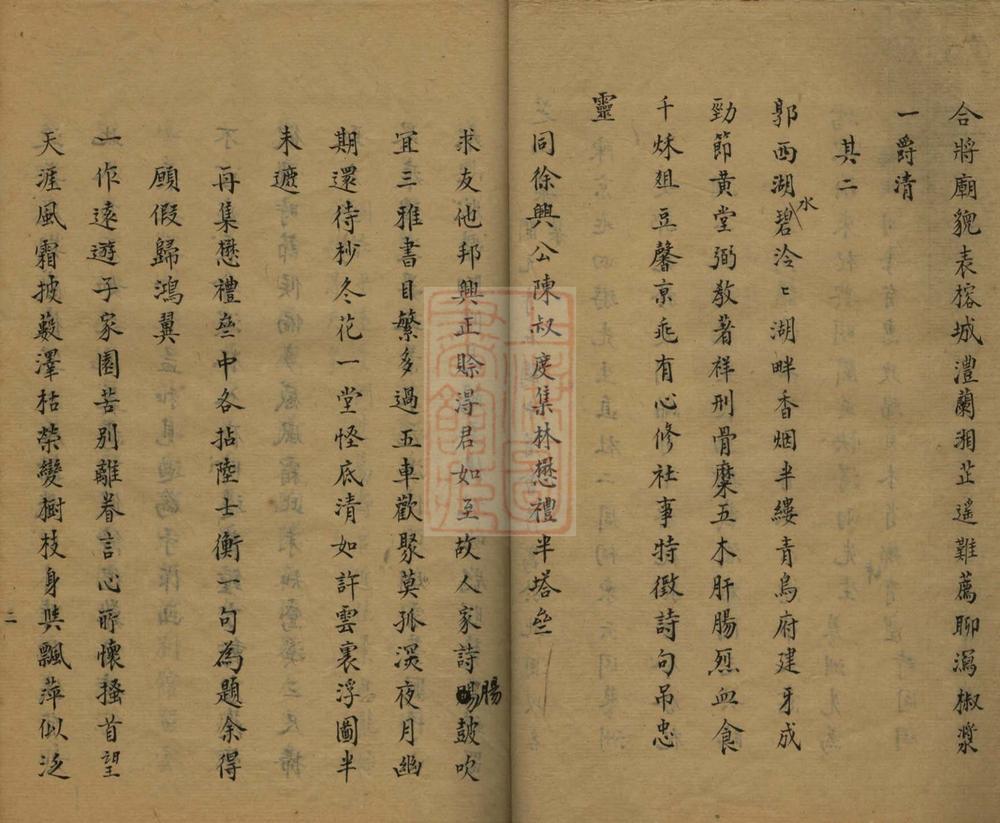 合將廟貌表榕城澧蘭湘芷遥難薦聊瀉椒漿
一爵清
其二
郭西湖水碧泠〻湖畔香烟半縷青烏府建牙成
勁節黄堂弼教著祥刑骨糜五木肝腸烈血食
千秌俎豆馨京兆有心修社事特徵詩句吊忠
靈
同徐興公陳叔度集林懋禮半塔壘
求友他邦興正賖得君如至故人家詩腸鼓吹
宜三雅書目繁多過五車歡聚莫孤深夜月幽
期還待杪冬花一堂怪底清如許雲裏浮圖半
未遮
再集懋禮壘中各拈陸士衡一句為題余得
願假歸鴻翼
一作逺遊子家園苦别離眷言心所懷搔首望
天涯風霜披藪澤枯榮變樹枝身與飄萍似泛
二